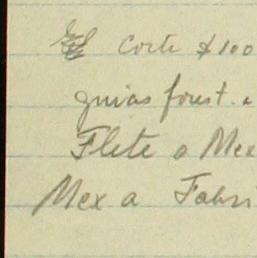 Corte $100
guias forest.
Flete a Mex
Mex a Fabri